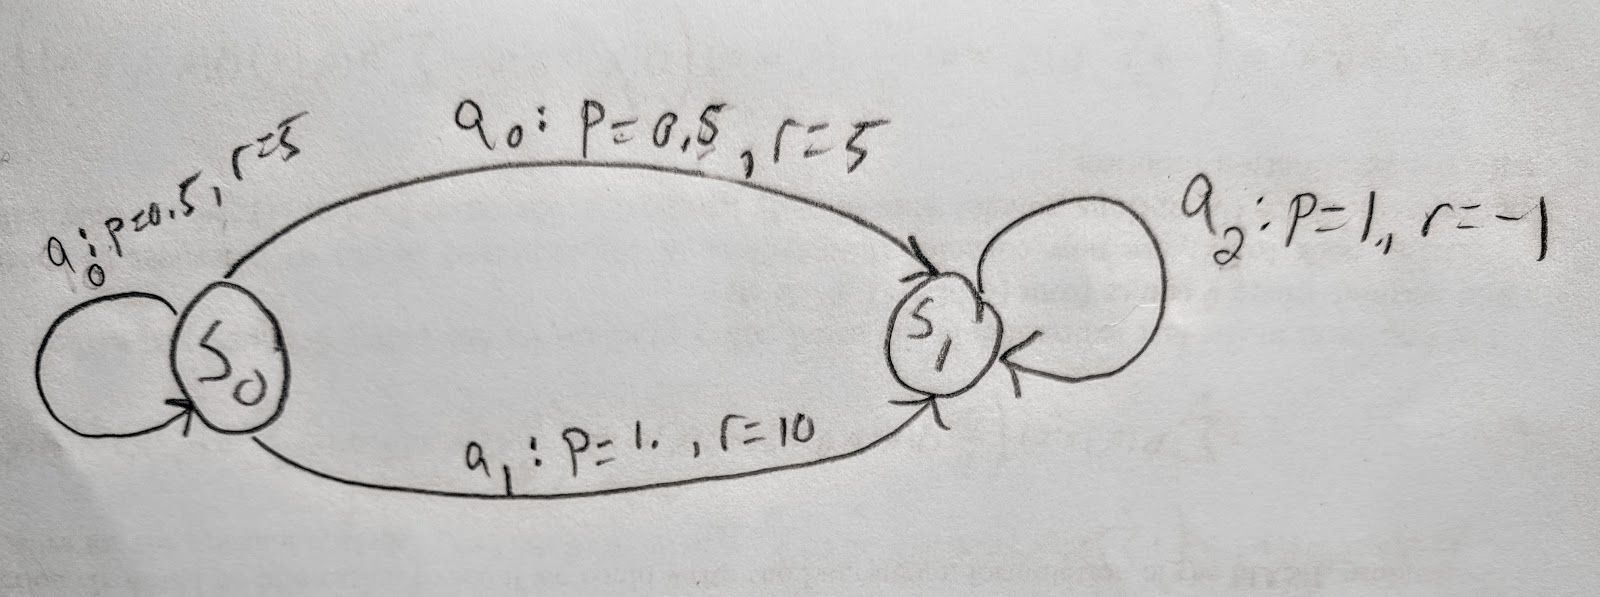 a₀: p=0.5, r=5
a₀: p=0.5, r=5
a₂: p=1., r=-1
S₀
S₁
a₁: p=1., r=10